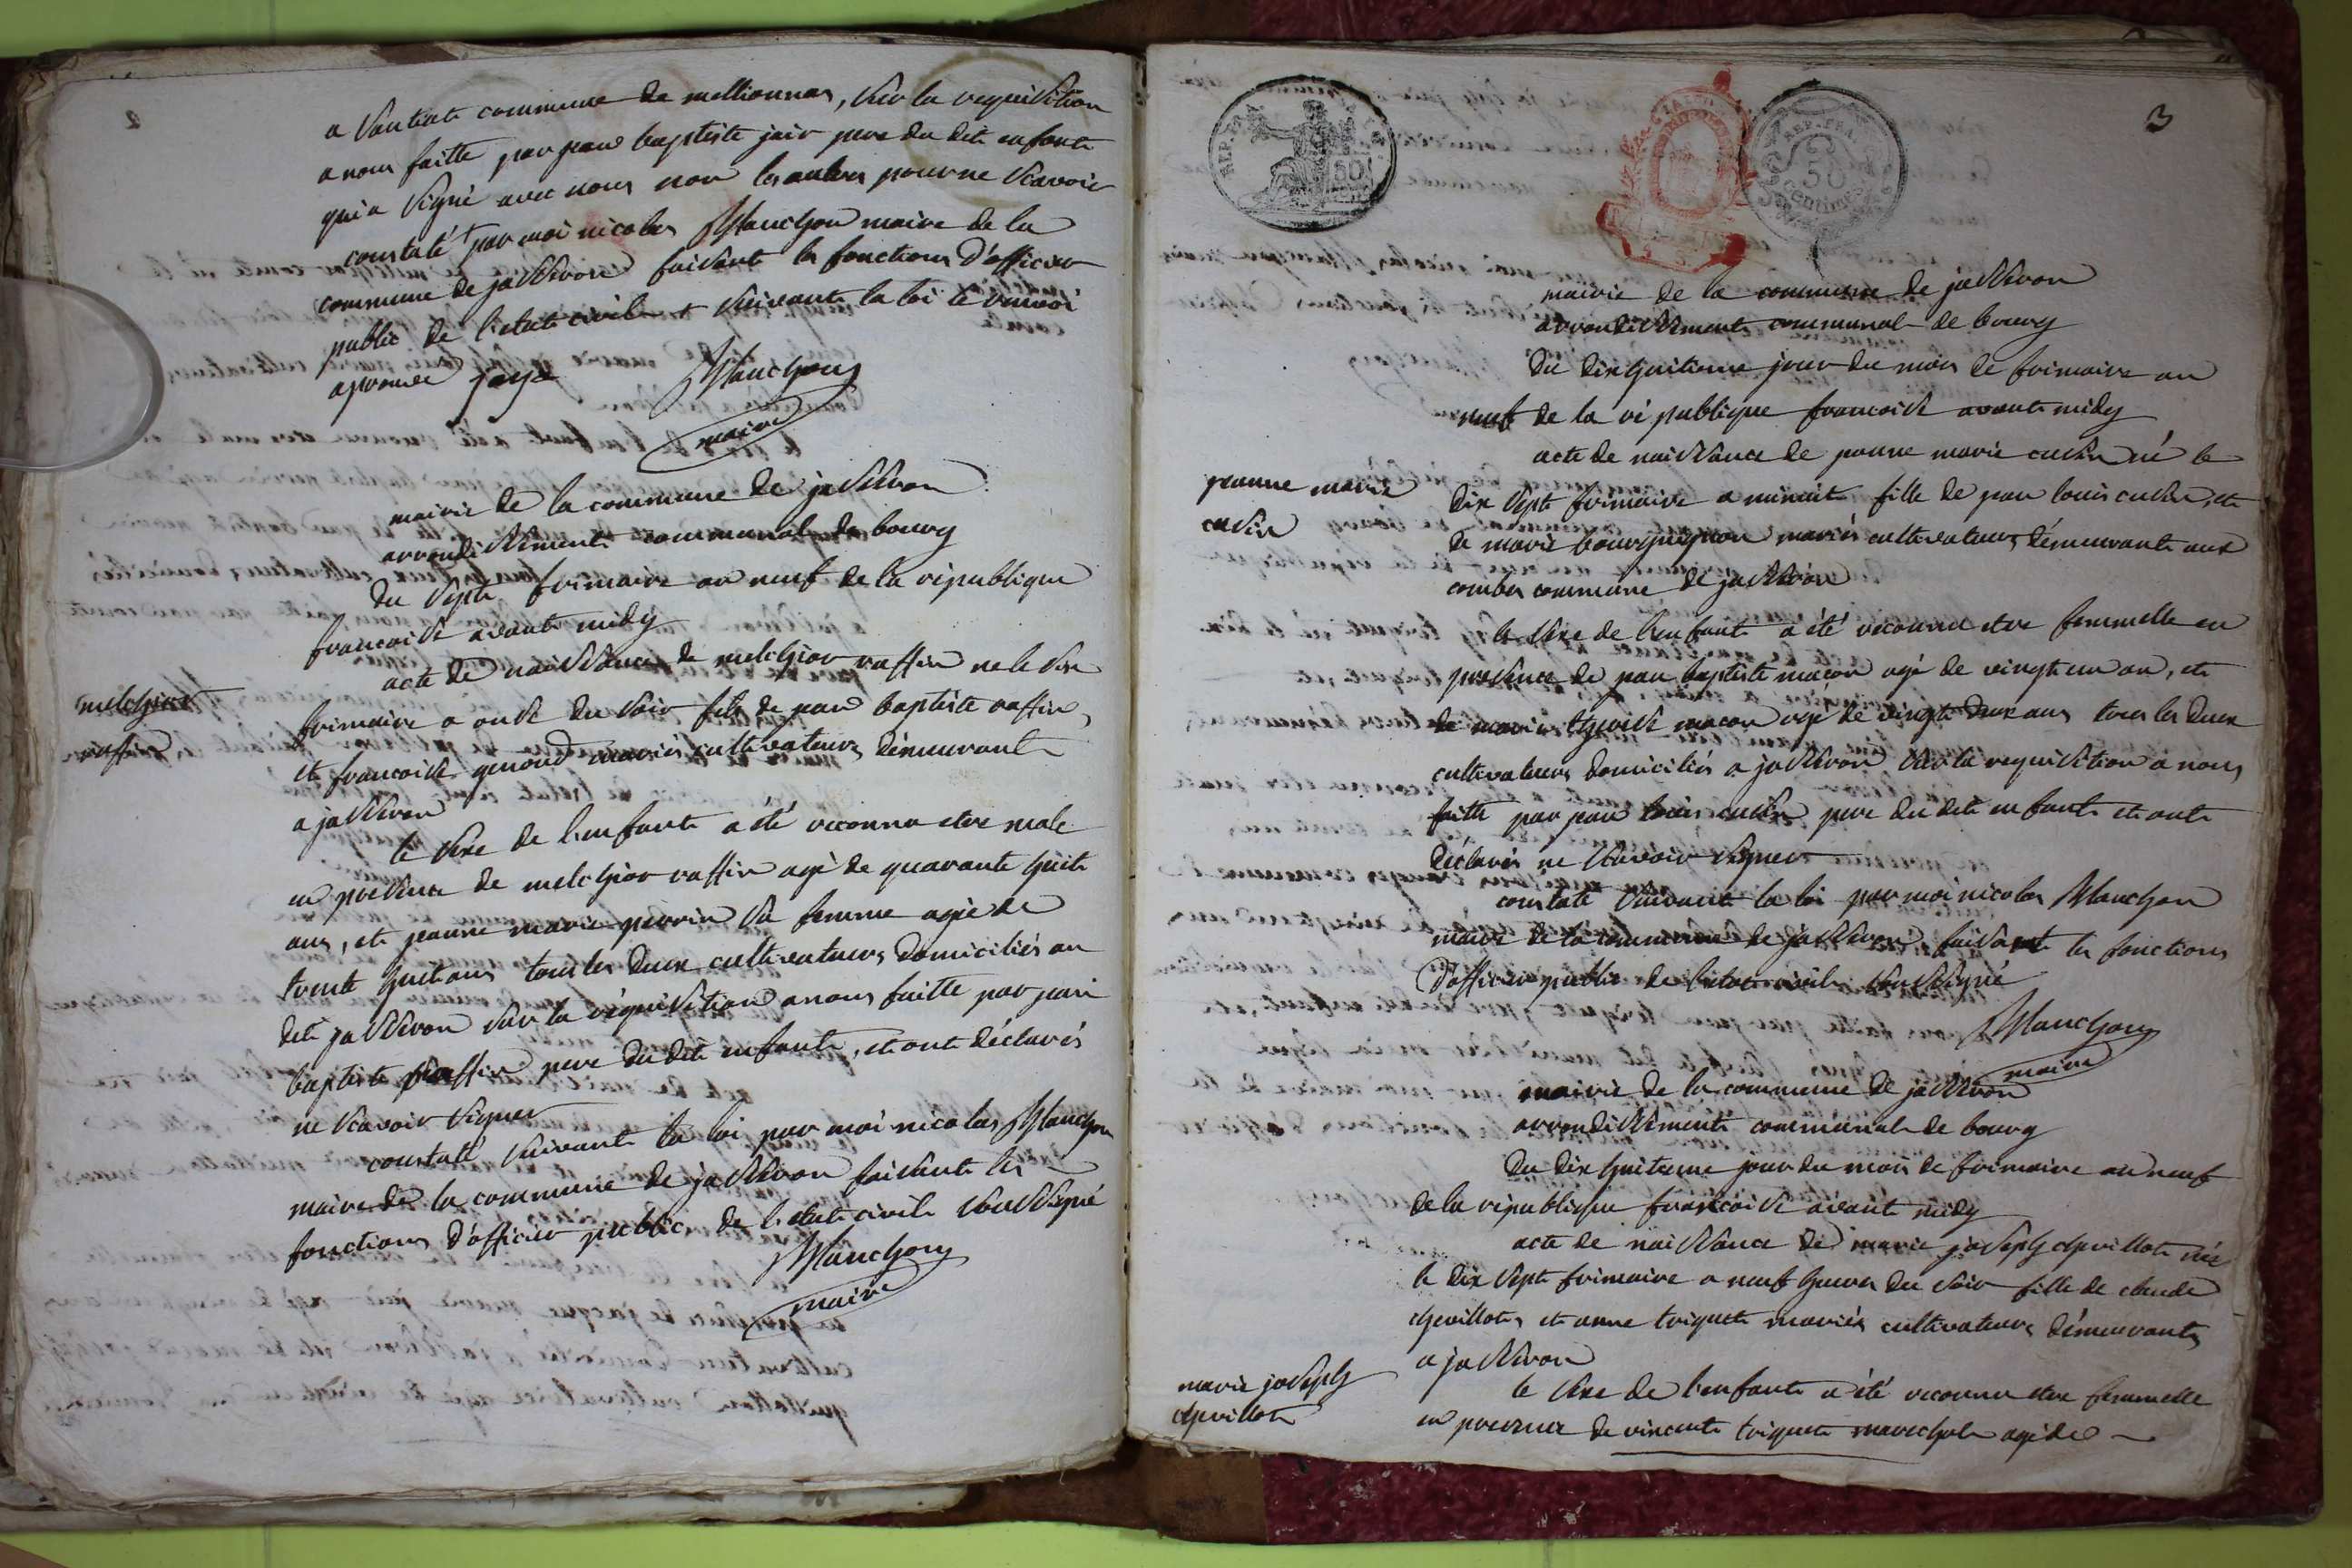 a Santiat commune de meillionnas, sur la requisition
a nous faitte par jean baptiste jair pere du dit enfant
qui a signé avec nous non les autres pour ne scavoir
constaté + par moi nicolas Manchon maire de la
commune de jasseron faisant les fonctions d'officier
public de l'etat civil + suivant la loi le renvoi
aprouvé jaye Manchon
maire
mairie de la commune de jasseron
arrondissement communal de bourg
Du sept frimaire an neuf de la république
francoise avant midy
acte de naissance de melchior raffin ne le six
melchior
raffin
frimaire a onze du soir fils de jean baptiste raffin,
et francoise genoud mariés cultivateurs démeurant
a jasseron
le sexe de l'enfant a été reconnu etre male
en presence de melchior raffin agé de quarante huit
ans, et jeanne marie perrin sa femme agée de
trente huit ans tous les deux cultivateurs domiciliés au
dit jasseron sur la réquisition a nous faitte par jean
baptiste raffin pere du dit enfant, et ont déclarés
ne scavoir signer
constaté suivant la loi par moi nicolas Manchon
maire de la commune de jasseron faisant les
fonctions d'officier public de l'etat civil soussigné
Manchon
maire
REP. FRA.
50
REP. FRA.
50
centimes
3
mairie de la commune de jasseron
arrondissement communal de bourg
Du dix huitieme jour du mois de frimaire an
neuf de la république francoise avant midy
acte de naissance de jeanne marie cusin né le
jeanne marie
cusin
dix sept frimaire a minuit fille de jean louis cusin, et
de marie bourguignon mariés cultivateurs démeurant aux
combes commune de jasseron
le sexe de l'enfant a été reconnu etre femmelle en
presence de jean baptiste maçon agé de vingt un an, et
de marie thereise macon agé de vingt deux ans tous les deux
cultivateurs domiciliés a jasseron sur la requisition a nous
faitte par jean louis cusin pere du dit enfant et ont
déclarés ne scavoir signer
constaté suivant la loi par moi nicolas Manchon
maire de la commune de jasseron faisant les fonctions
d'officier public de l'etat civil soussigné
Manchon
maire
mairie de la commune de jasseron
arrondissement communal de bourg
Du dix huitieme jour du mois de frimaire an neuf
de la république francoise avant midy
acte de naissance de marie joseph chevillot née
le dix sept frimaire a neuf heures du soir fille de claude
chevillot, et anne triquet mariés cultivateurs démeurants
a jasseron
marie joseph
chevillot
le sexe de l'enfant a été reconnu etre femmelle
en presence de vincent triquet marechal agé de